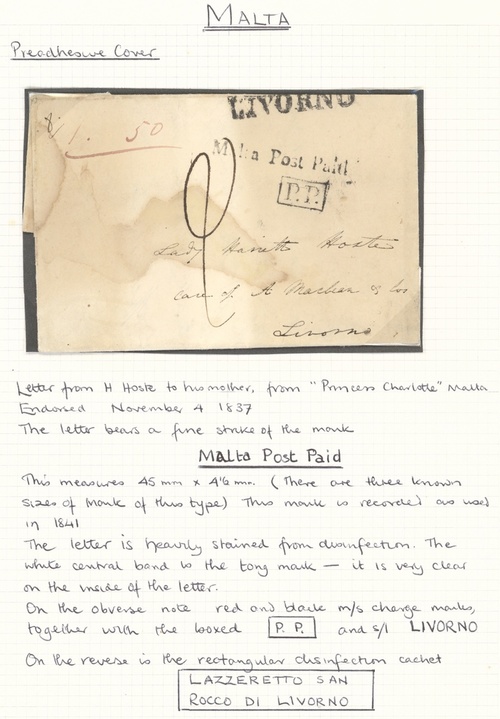 MALTA
Preadhesive Cover
LIVORNO
1. 50
Malta Post Paid
P.P.
Lady Harriett Hoste
care of A Macbean & Co
Livorno
Letter from H Hoste to his mother, from "Princess Charlotte" Malta
Endorsed November 4 1837
The letter bears a fine strike of the mark
Malta Post Paid
This measures 45 mm x 4½ mm. (There are three known
sizes of mark of this type) This mark is recorded as used
in 1841
The letter is heavily stained from disinfection. The
white central band is the tong mark – it is very clear
on the inside of the letter.
On the obverse note red and black m/s charge marks,
together with the boxed P.P. and s/l LIVORNO
On the reverse is the rectangular disinfection cachet
LAZZERETTO SAN
ROCCO DI LIVORNO